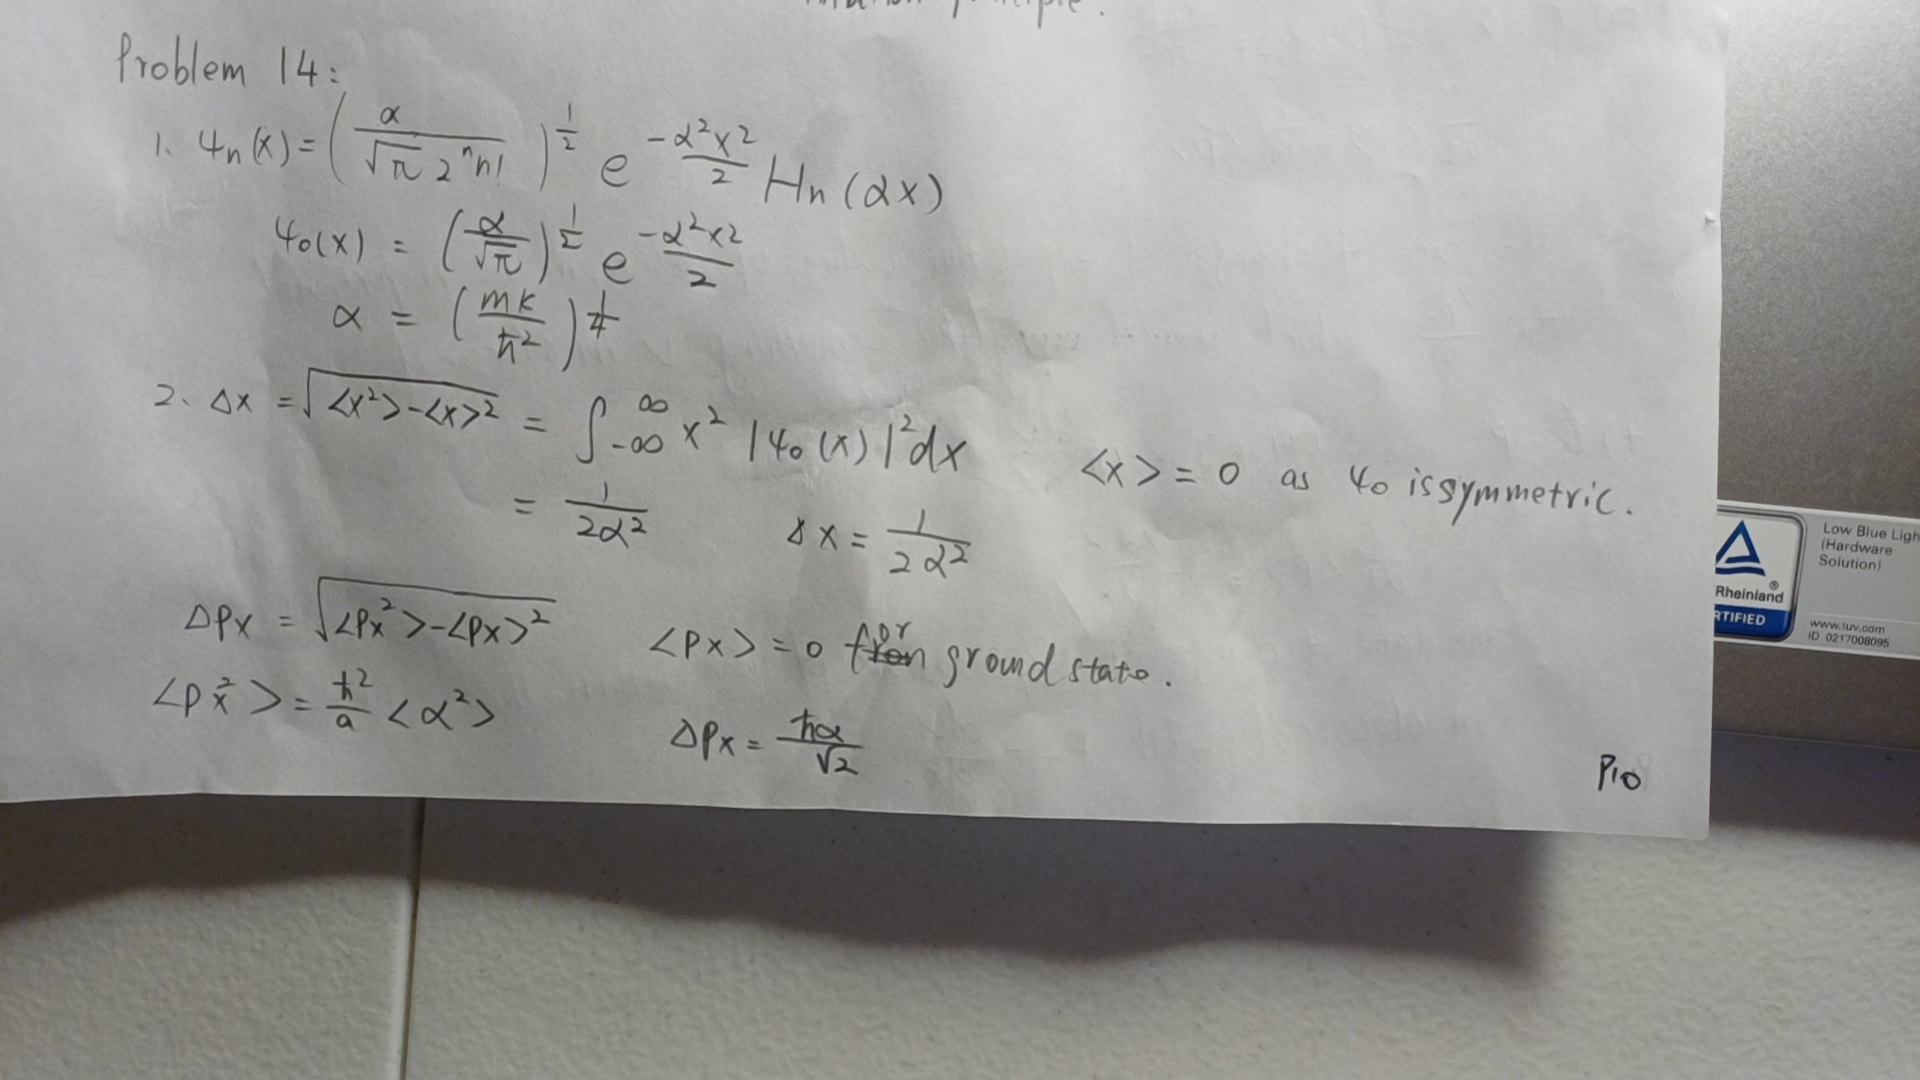 Problem 14:
1. ψn(x) = (α / √π 2^n n!)^(1/2) e^(-α²x²/2) Hn(αx)
ψ0(x) = (α/√π)^(1/2) e^(-α²x²/2)
α = (mk/ħ²)^(1/4)
2. Δx = √(<x²>-<x>²) = ∫_-∞^∞ x² |ψ0(x)|² dx <x> = 0 as ψ0 is symmetric.
= 1/2α² Δx = 1/2α²
ΔPx = √(<Px²>-<Px>²) <Px> = 0 for ground state.
<Px²> = ħ²/a <α²> ΔPx = ħα/√2
P10
Low Blue Ligh
(Hardware
Solution)
Rheinland
®
RTIFIED
www.tuv.com
ID 0217008095